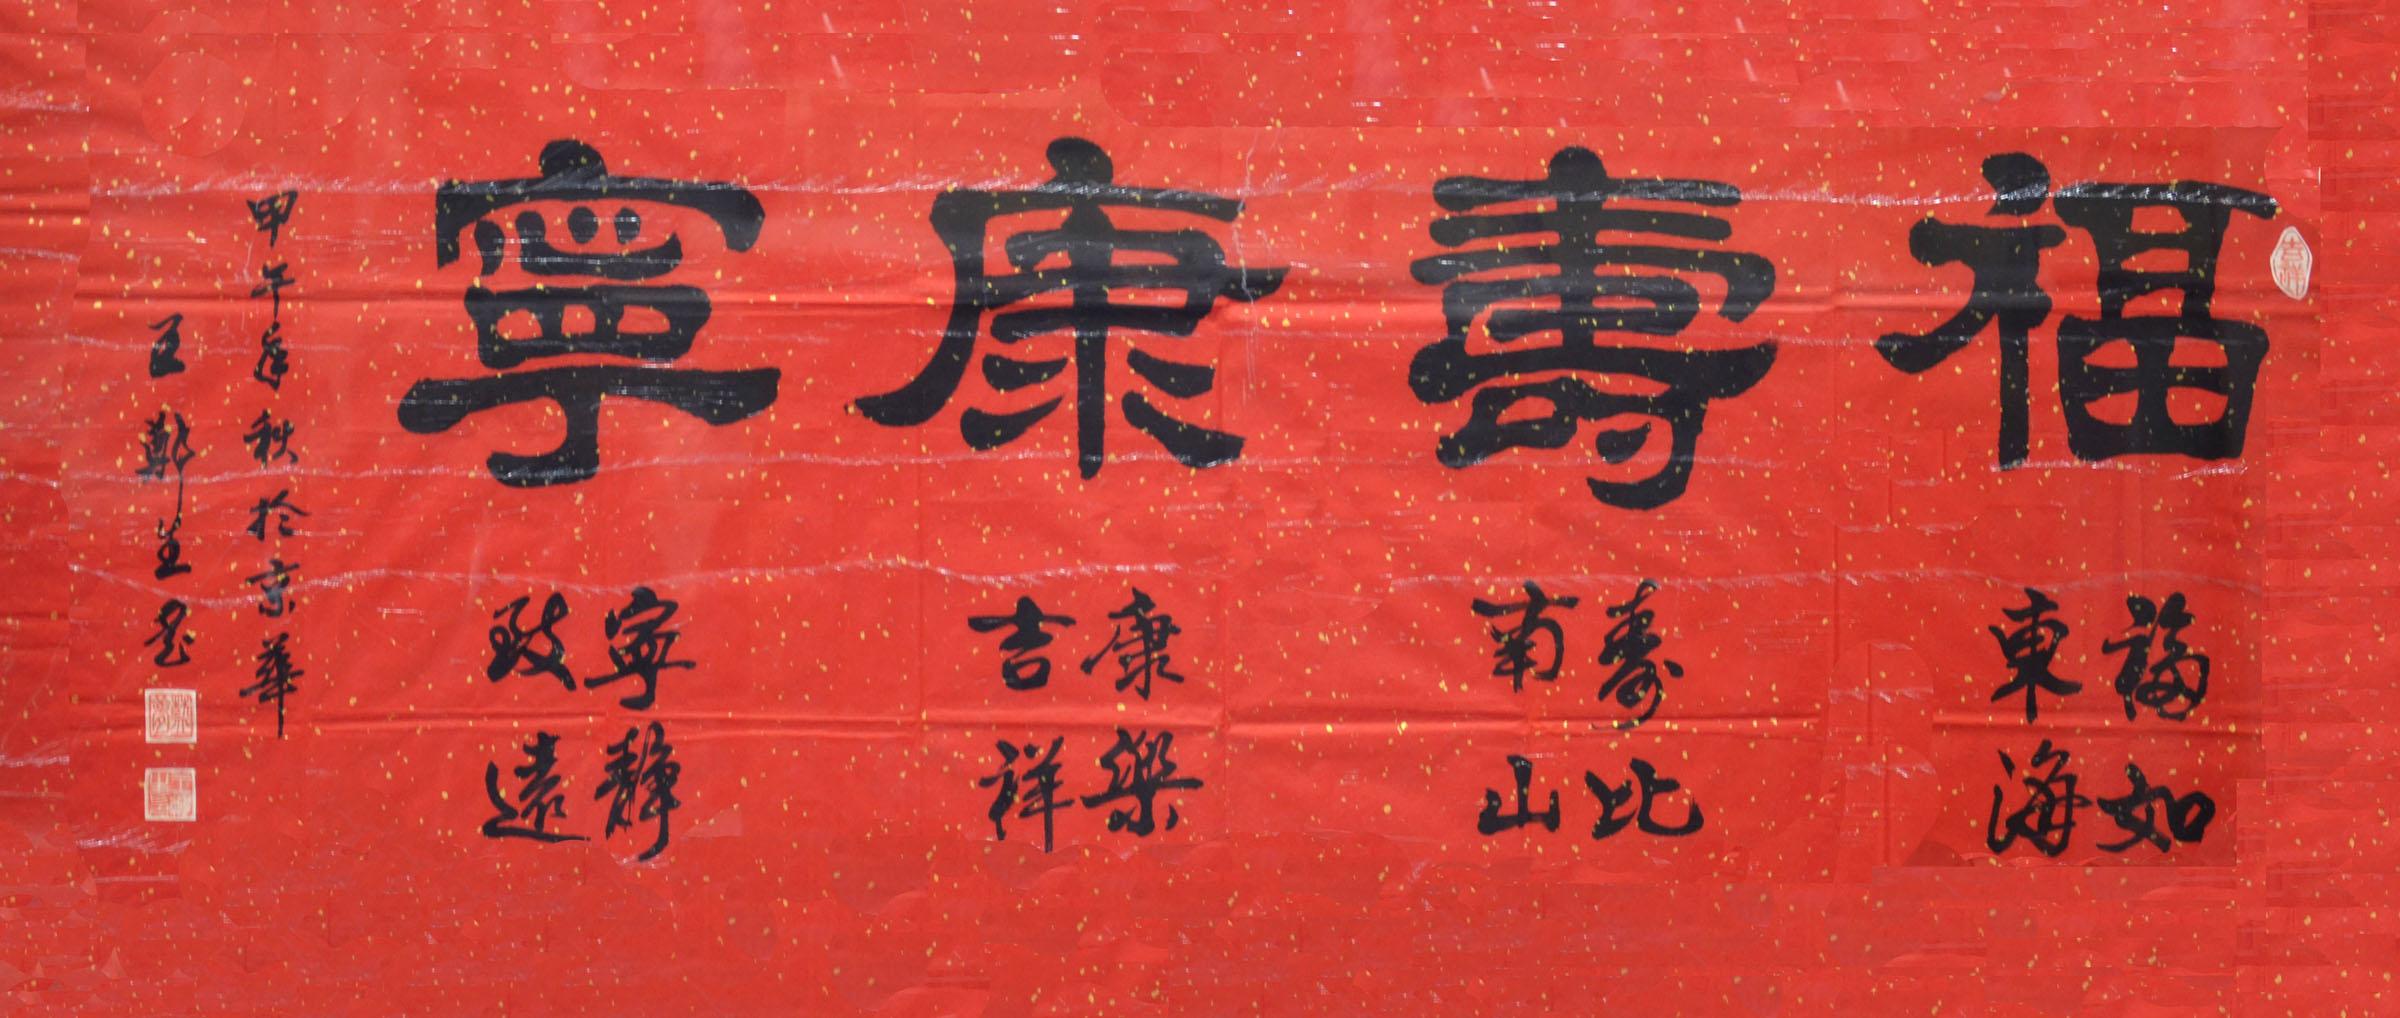 福壽康寧
福如
東海
壽比
南山
康樂
吉祥
寧靜
致遠
甲午年秋於京華
王鄭生書
吉祥